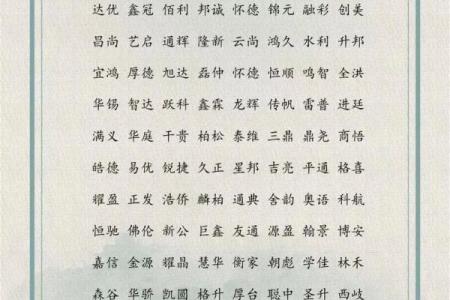 达优 鑫冠 佰利 邦诚 怀德 锦元 融彩 创美
昌尚 艺启 通辉 隆新 云尚 鸿久 水利 升邦
宜鸿 厚德 旭达 磊仲 怀德 恒顺 鸣智 全洪
华锡 智达 跃科 鑫霖 龙辉 传帆 雷普 进廷
满义 华庭 干贵 柏松 泰维 三鼎 鼎尧 商悟
皓德 易优 锐捷 久正 星邦 吉亮 平通 格喜
耀盈 正发 浩侨 麟柏 通典 舍韵 奥语 科航
恒驰 佛伦 新公 巨鑫 友通 源盈 翰景 博安
嘉信 金源 耀晶 慧华 衡家 朝彪 学佳 林禾
森谷 华骄 凯圆 格升 厚台 聪中 圣升 西岐